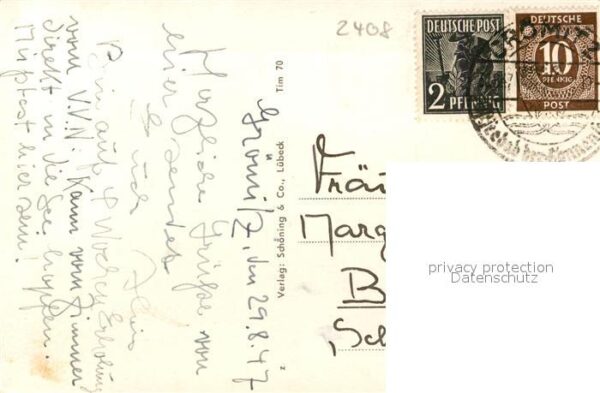 2408
DEUTSCHE POST
2 PFENNIG
DEUTSCHE
10
PFENNIG
POST
GRÖMITZ
Grömitz, den 29.8.47
Herzliche Grüße von
hier sendet
Euch
Bin auf 4 Wochen Erholung
vom V.V.N. Kann vom Zimmer
direkt in die See hopsen.
Müßtest hier sein!
Verlag: Schöning & Co., Lübeck
Tim 70
z
Fräu
Marg
B
Sc
privacy protection
Datenschutz